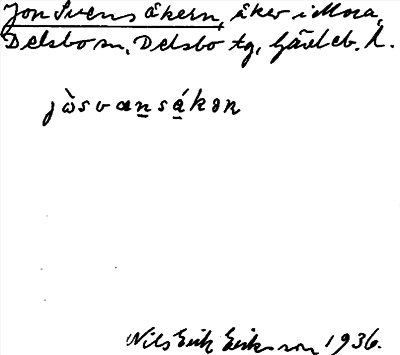 Jon Svens åkern, åker i Mora,
Delsbo sn, Delsbo tg, Gävleb. l.
jòsvansákən
Nils Erik Eriksson 1936.